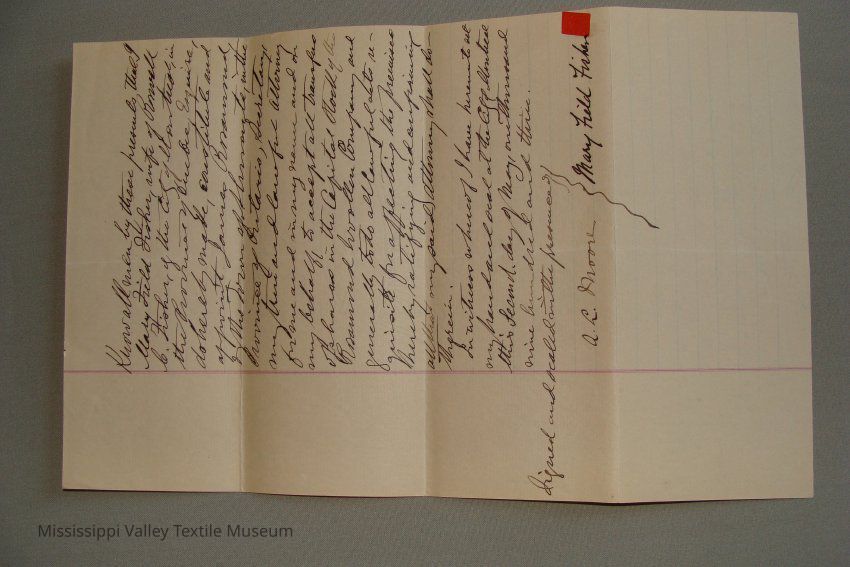 Know all men by these presents that I
Mary Field Fisher, wife of Roswell
C. Fisher of the City of Montreal in
the Province of Quebec Esquire,
do hereby make, constitute and
appoint James Rosamond
of the Town of Almonte in the
Province of Ontario, Secretary,
my true and lawful attorney
for me and in my name and on
my behalf to accept all transfers
of shares in the Capital Stock of the
Rosamond Woollen Company and
generally to do all lawful acts re-
quisite for effecting the premises
hereby ratifying and confirming
all that my said attorney shall do
therein.
In witness whereof I have hereunto set
my hand and seal at the City of Montreal
this Second day of May, one thousand
nine hundred and three.
Signed and sealed in the presence of
A. R. Moore
Mary Field Fisher
Mississippi Valley Textile Museum